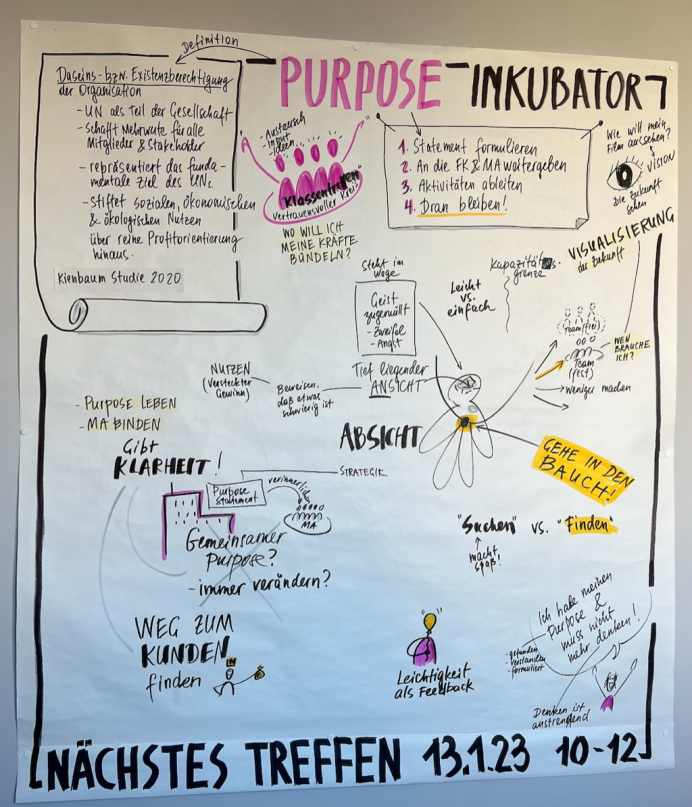 Definition
PURPOSE - INKUBATOR
Daseins- bzw. Existenzberechtigung
der Organisation
- UN als Teil der Gesellschaft
- schafft Mehrwerte für alle
Mitglieder & Stakeholder
- repräsentiert das funda-
mentale Ziel des UNs
- stiftet sozialen, ökonomischen
& ökologischen Nutzen
über reine Profitorientierung
hinaus.
Kienbaum Studie 2020
- Austausch
- Input
- Ideen
Klassentreffen
vertrauensvoller Kreis
WO WILL ICH
MEINE KRÄFTE
BÜNDELN?
1. Statement formulieren
2. An die FK & MA weitergeben
3. Aktivitäten ableiten
4. Dran bleiben!
Wie will mein
Film aussehen?
→ VISION
Die Zukunft
sehen
VISUALISIERUNG
der Zukunft
Steht im
Wege
Geist
zugemüllt
- Zweifel
- Angst
Leicht
vs.
einfach
Kapazitäts-
grenze
Team (frei)
Team
(fest)
WEN
BRAUCHE
ICH?
→ weniger machen
Tief liegender
ANSICHT
Beweisen,
daß etwas
schwierig ist
NUTZEN
(Versteckter
Gewinn)
ABSICHT
GEHE IN DEN
BAUCH!
- PURPOSE LEBEN
- MA BINDEN
Gibt
KLARHEIT!
STRATEGIE
Purpose
Statement
verinnerlichen
MA
Gemeinsamer
Purpose?
- immer verändern?
"Suchen" vs. "Finden"
↑
macht
Spaß!
WEG ZUM
KUNDEN
finden
Leichtigkeit
als Feedback
Ich habe meinen
Purpose &
muss nicht
mehr denken!
- gefunden
- verstanden
- formuliert
Denken ist
anstrengend
NÄCHSTES TREFFEN 13.1.23 10-12